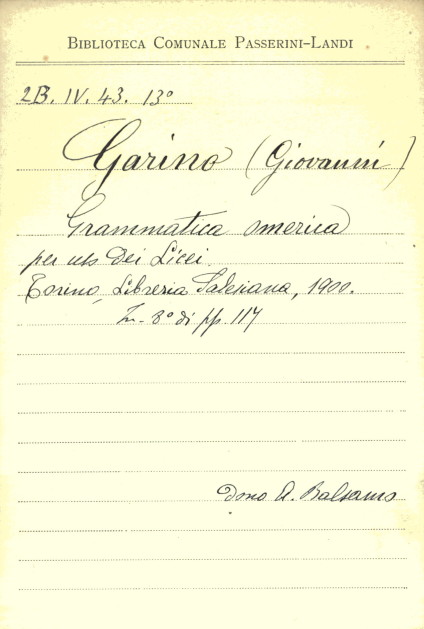 BIBLIOTECA COMUNALE PASSERINI-LANDI
2B. IV. 43. 13°
Garino (Giovanni)
Grammatica omerica
per uso dei Licei.
Torino, Libreria Salesiana, 1900.
In-8° di pp. 117
Dono A. Balsamo